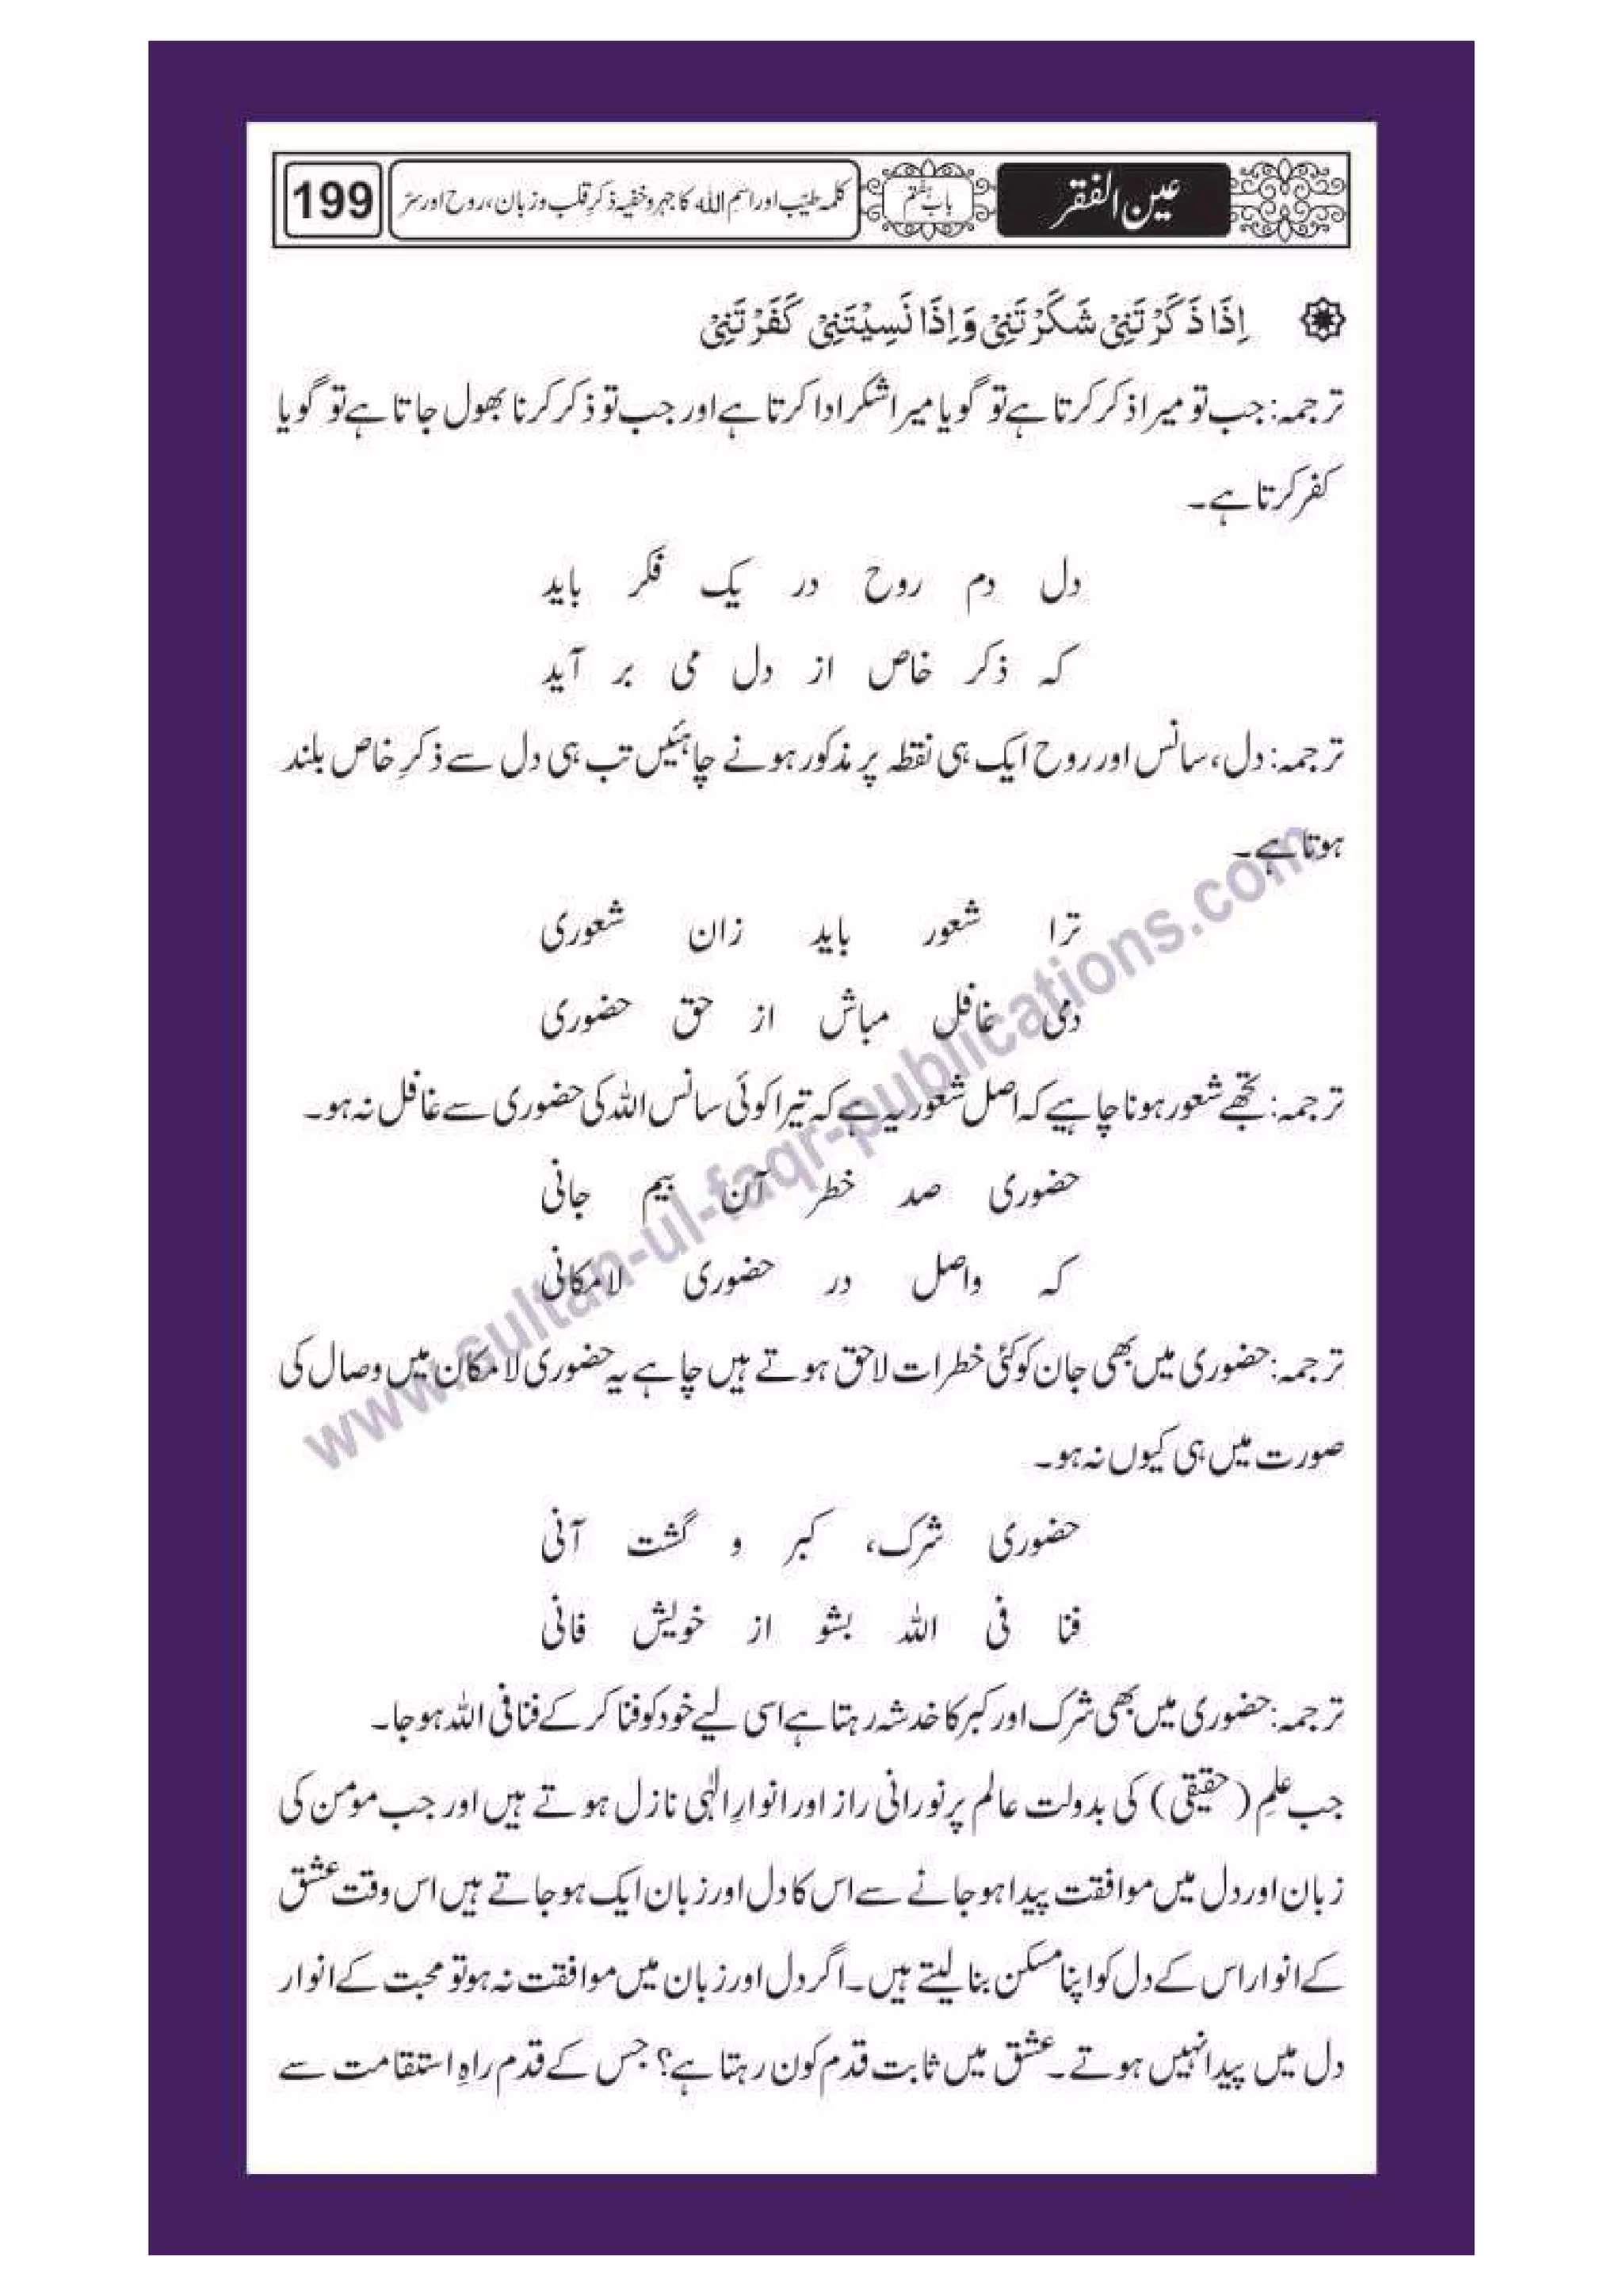 عین الفقر
باب ہفتم
کلمہ طیّب اور اسمِ اللہ کا جہر و خفیہ ذکرِ قلب و زبان، روح اور سِرّ
199
اِذَا ذَکَرْتَنِیْ شَکَرْتَنِیْ وَاِذَا نَسِیْتَنِیْ کَفَرْتَنِیْ
ترجمہ: جب تو میرا ذکر کرتا ہے تو گویا میرا شکر ادا کرتا ہے اور جب تو ذکر کرنا بھول جاتا ہے تو گویا
کفر کرتا ہے۔
دل دم روح در یک فکر باید
کہ ذکر خاص از دل می بر آید
ترجمہ: دل، سانس اور روح ایک ہی نقطہ پر مذکور ہونے چاہئیں تب ہی دل سے ذکرِ خاص بلند
ہوتا ہے۔
ترا شعور باید زان شعوری
دمی غافل مباش از حق حضوری
ترجمہ: تجھے شعور ہونا چاہیے کہ اصل شعور یہ ہے کہ تیرا کوئی سانس اللہ کی حضوری سے غافل نہ ہو۔
حضوری صد خطر آن بیم جانی
کہ واصل در حضوری لامکانی
ترجمہ: حضوری میں بھی جان کو کئی خطرات لاحق ہوتے ہیں چاہے یہ حضوری لامکان میں وصال کی
صورت میں ہی کیوں نہ ہو۔
حضوری شرک، کبر و گشت آنی
فنا فی اللہ بشو از خویش فانی
ترجمہ: حضوری میں بھی شرک اور کبر کا خدشہ رہتا ہے اسی لیے خود کو فنا کر کے فنا فی اللہ ہو جا۔
جب علمِ (حقیقی) کی بدولت عالم پر نورانی راز اور انوارِ الٰہی نازل ہوتے ہیں اور جب مومن کی
زبان اور دل میں موافقت پیدا ہو جانے سے اس کا دل اور زبان ایک ہو جاتے ہیں اس وقت عشق
کے انوار اس کے دل کو اپنا مسکن بنا لیتے ہیں۔ اگر دل اور زبان میں موافقت نہ ہو تو محبت کے انوار
دل میں پیدا نہیں ہوتے۔ عشق میں ثابت قدم کون رہتا ہے؟ جس کے قدم راہِ استقامت سے
www.sultan-ul-faqr-publications.com